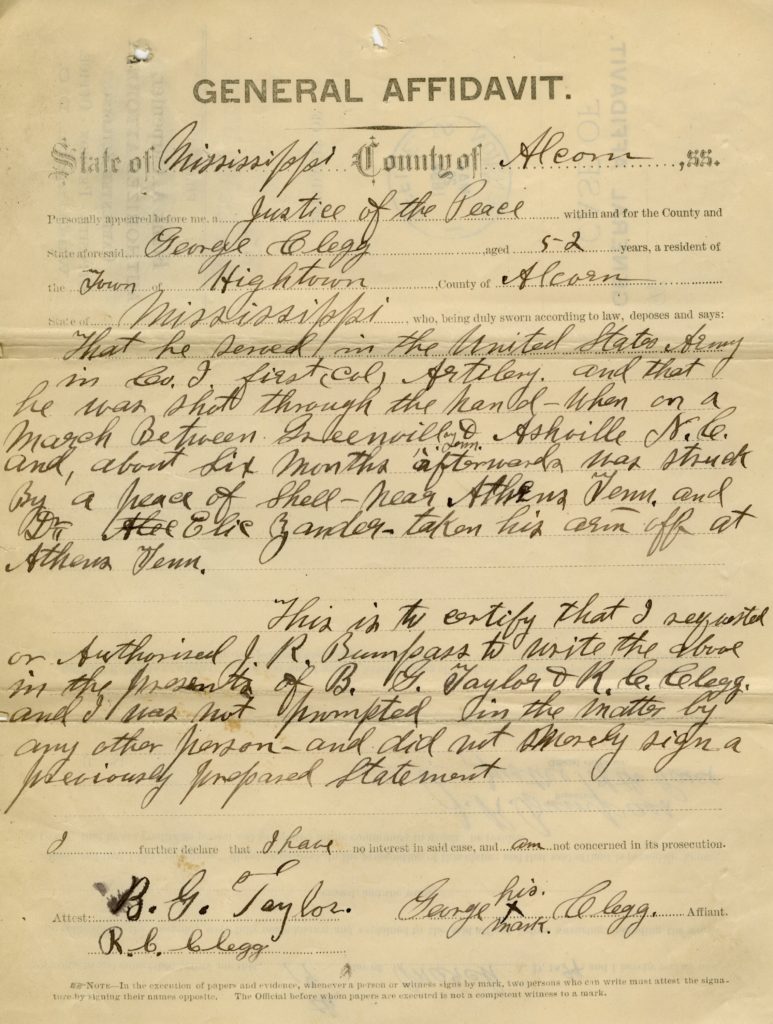 GENERAL AFFIDAVIT.
State of Mississippi County of Alcorn, ss.
Personally appeared before me, a Justice of the Peace within and for the County and
State aforesaid, George Clegg, aged 52 years, a resident of
the Town of Hightown, County of Alcorn
State of Mississippi, who, being duly sworn according to law, deposes and says:
That he served in the United States Army
in Co. I first (col) Artilery. and that
he was shot through the hand – when on a
March Between Greenvill & Ashville N. C.
and, about Six Months afterwards was struck
By a peace of Shell – near Athens Tenn. and
Dr Elic Zander – taken his arm off at
Athens Tenn.
This is to certify that I requested
or Authorised J. R. Bumpass to write the above
in the presents of B. G. Taylor & R. C. Clegg.
and I was not prompted in the matter by
any other person – and did not merely sign a
previously prepared Statement
I further declare that I have no interest in said case, and am not concerned in its prosecution.
Attest: B. G. Taylor. George his x mark. Clegg. Affiant.
R. C. Clegg
NOTE—In the execution of papers and evidence, whenever a person or witness signs by mark, two persons who can write must attest the signa-
ture by signing their names opposite. The Official before whom papers are executed is not a competent witness to a mark.